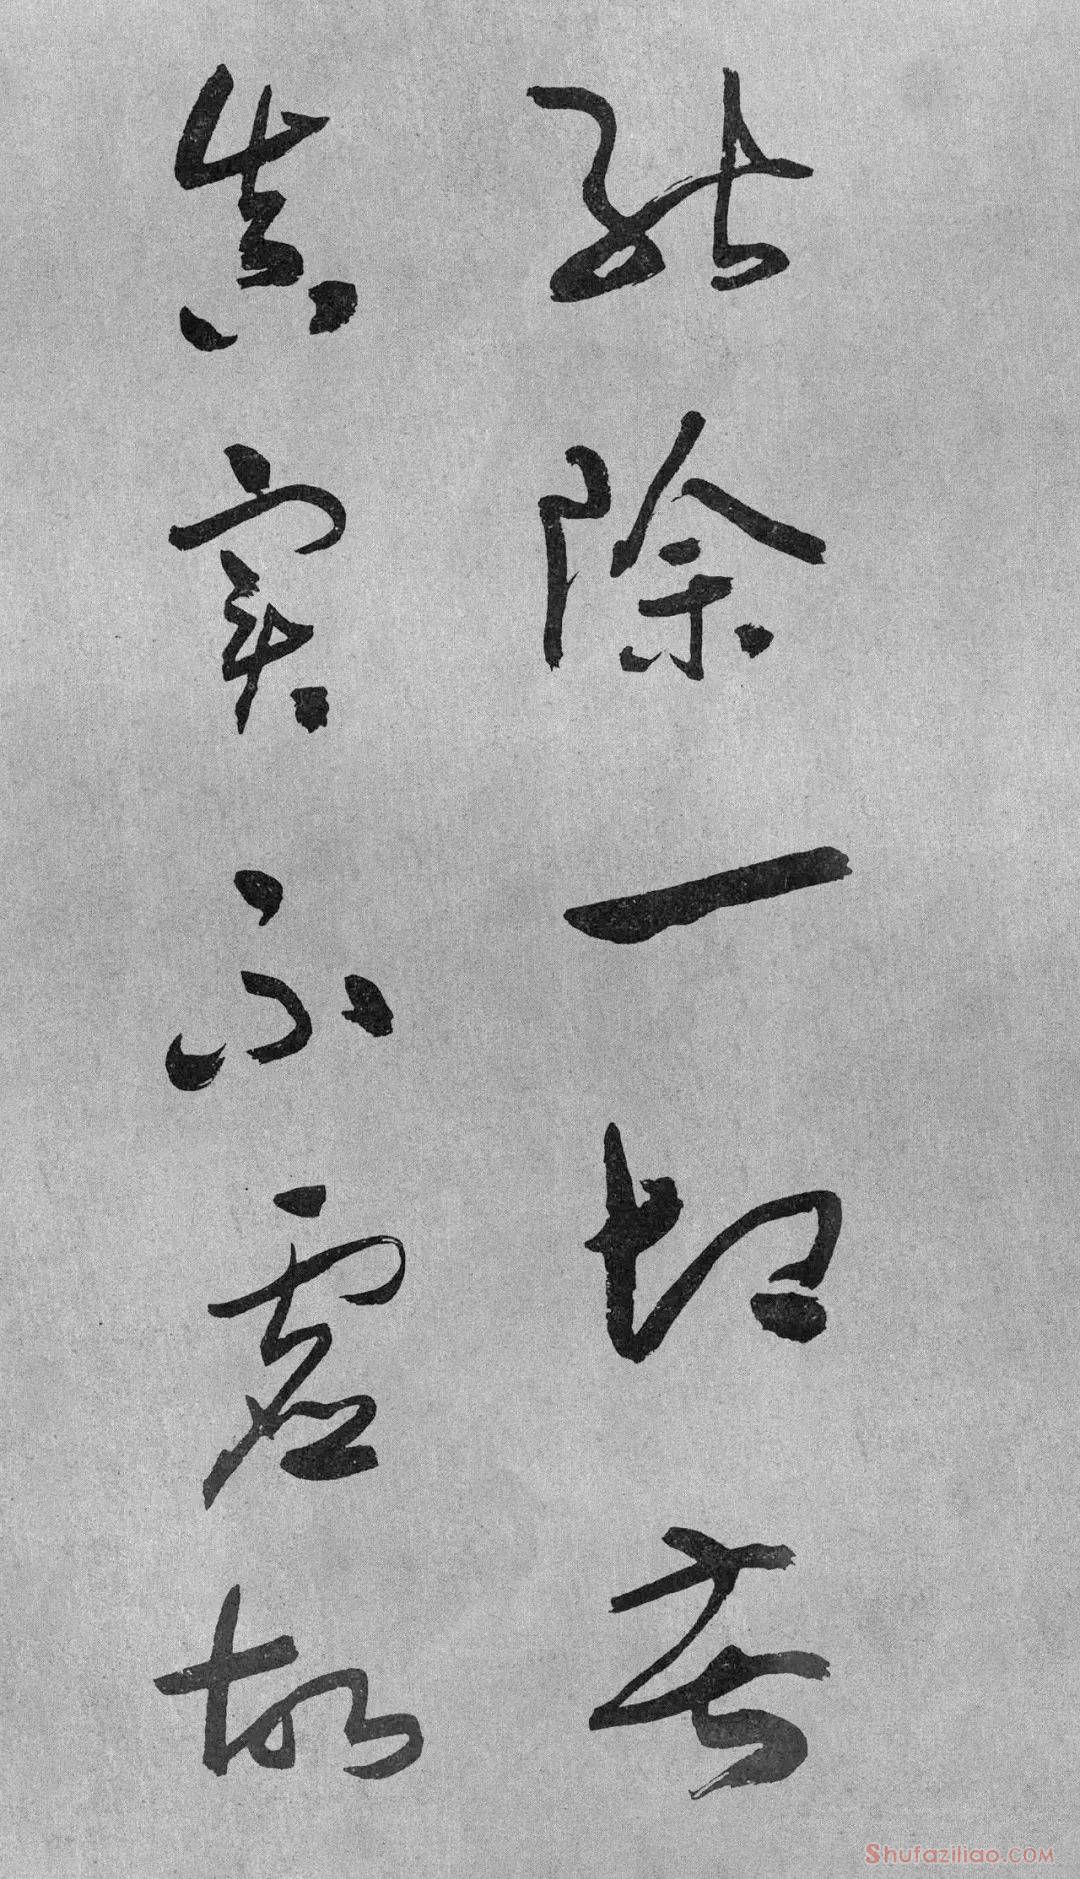 能除一切苦
真實不虛故
Shufaziliao.COM